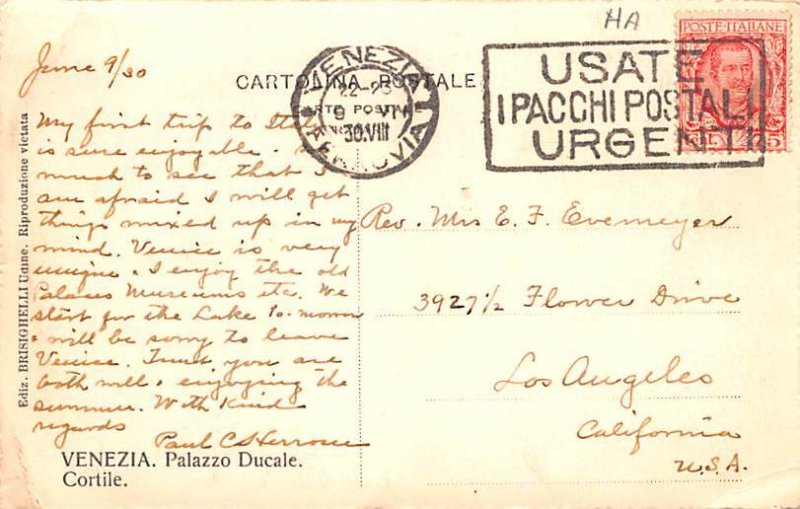 HA
POSTE ITALIANE
June 9/30
CARTOLINA POSTALE
VENEZIA
22-23
9 VI
30.VIII
FERROVIA
USATE
I PACCHI POSTALI
URGENTI
My first trip to
is sure enjoyable.
much to see that I
am afraid I will get
things mixed up in my
mind. Venice is very
unique. I enjoy the old
Palaces Museums etc. We
start for the Lake to-morrow
will be sorry to leave
Venice. Trust you are
both well & enjoying the
summer. With kind
regards
Paul C
Rev. Mrs E. F. Evemeyer
3927 1/2 Flower Drive
Los Angeles
California
U.S.A.
VENEZIA. Palazzo Ducale.
Cortile.
Ediz. BRISIGHELLI Udine. Riproduzione vietata